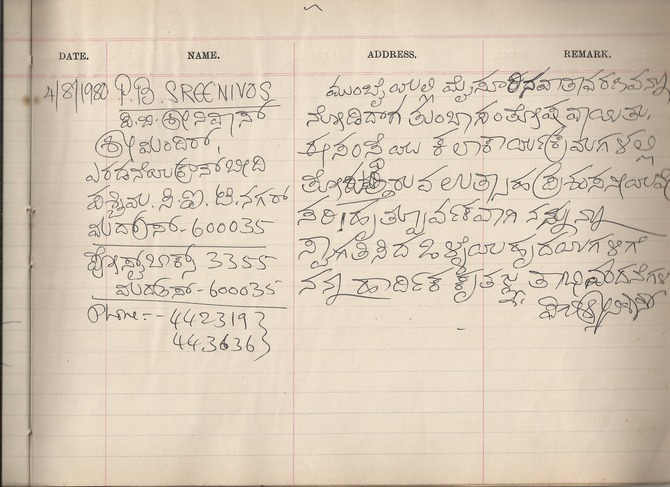 DATE. NAME. ADDRESS. REMARK.
4/8/1980 P.B. SREENIVOS
ಪಿ.ಬಿ. ಶ್ರೀನಿವಾಸ್
ಶ್ರೀ ಮಂದಿರ್,
ಎರಡನೆಯ ಕ್ರಾಸ್ ಬೀದಿ
ಪಶ್ಚಿಮ. ಸಿ.ಐ. ಟಿ. ನಗರ್
ಮದ್ರಾಸ್ - 600035
ಪೋಸ್ಟ್ ಬಾಕ್ಸ್ 3355
ಮದ್ರಾಸ್ - 600035
Phone: - 442319
443636
ಮುಂಬೈಯಲ್ಲಿ ಮೈಸೂರಿನ ವಾತಾವರಣವನ್ನು
ನೋಡಿದಾಗ ತುಂಬಾ ಸಂತೋಷವಾಯಿತು.
ಈ ಸಂಸ್ಥೆಯ ಕಲಾಕಾರ್ಯಕ್ರಮಗಳಲ್ಲಿ
ತೋರುತ್ತಿರುವ ಉತ್ಸಾಹ ಪ್ರಶಂಸನೀಯವೇ
ಸರಿ! ಹೃತ್ಪೂರ್ವಕವಾಗಿ ನನ್ನನ್ನು
ಸ್ವಾಗತಿಸಿದ ಒಳ್ಳೆಯ ಹೃದಯಗಳಿಗೆ
ನನ್ನ ಹಾರ್ದಿಕ ಕೃತಜ್ಞತಾಭಿವಂದನೆಗಳು